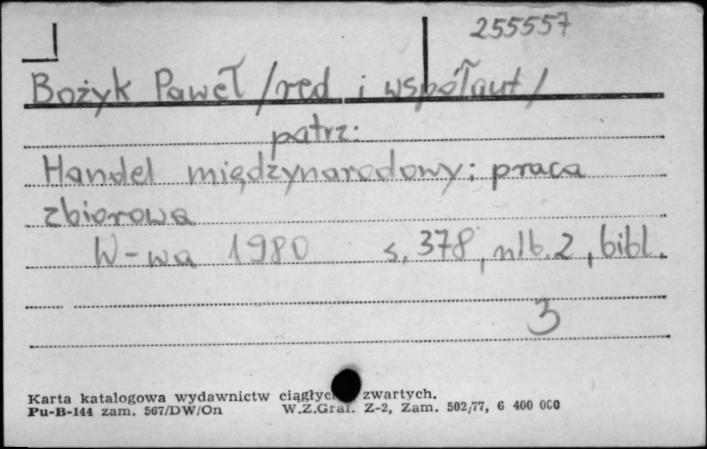 255557
Bożyk Paweł /red i współaut/
patrz:
Handel międzynarodowy: praca
zbiorowa
W-wa 1980 s. 378, nlb. 2, bibl.
3
Karta katalogowa wydawnictw zwartych.
Pu-B-144 zam. 567/DW/On W.Z.Graf. Z-2, Zam. 502/77, 6 400 000